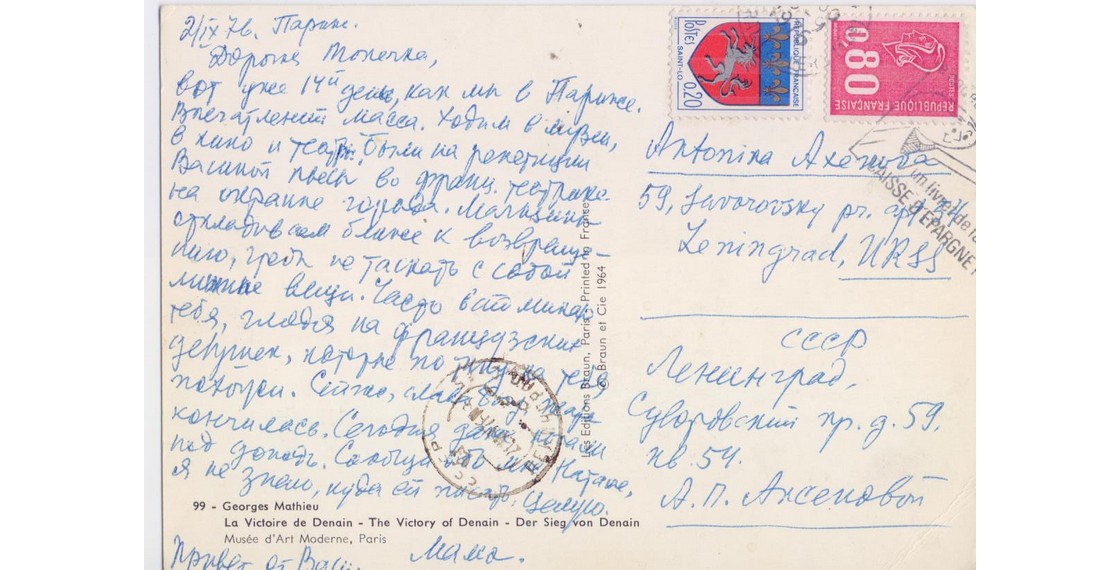 2/IX 76. Париж.
Дорогая Тонечка,
вот уже 14й день, как мы в Париже.
Впечатлений масса. Ходим в музеи,
в кино и театры. Были на репетиции
Васиной пьесы во франц. театрике
на окраине города.
откладываем ближе к возвраще-
нию, чтоб не таскать с собой
лишние вещи. Часто вспоминаю
тебя, глядя на французских
девушек, которые по типу на тебя
похожи. Сейчас, слава богу, жара
кончилась. Сегодня даже
под дождь. Сообщи
я не знаю, куда ей писать. Целую.
Мама.
Привет от Васи.
99 - Georges Mathieu
La Victoire de Denain - The Victory of Denain - Der Sieg von Denain
Musée d'Art Moderne, Paris
Les Editions Braun, Paris - Printed in France
© Braun et Cie 1964
POSTES
SAINT-LO
0,20
REPUBLIQUE FRANCAISE
0,80
POSTES
REPUBLIQUE FRANÇAISE
un livret de la
CAISSE D'EPARGNE
Antonina Axenova
59, Suvorovsky pr.
Leningrad, URSS
СССР
Ленинград,
Суворовский пр. д. 59,
кв. 54.
А. П. Аксеновой